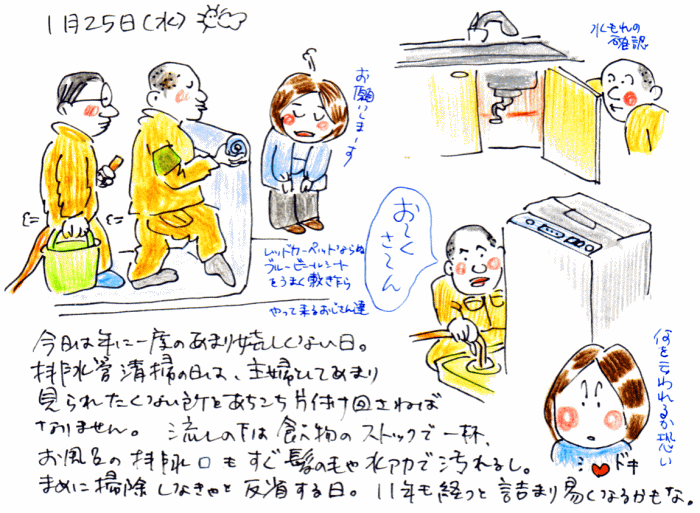 1月25日(水)
お願いしまーす
水もれの
確認
レッドカーペットならぬ
ブルービニールシート
をうまく敷きながら
やって来るおじさん達
お〜く
さ〜ん
何を言われるか恐い
ドキ
今日は年に一度のあまり嬉しくない日。
排水管清掃の日は、主婦としてあまり
見られたくない所をあちこち片付け回さねば
なりません。 流しの下は食べ物のストックで一杯、
お風呂の排水口もすぐ髪の毛や水アカで汚れるし。
まめに掃除しなきゃと反省する日。 11年も経つと詰まり易くなるかもな。